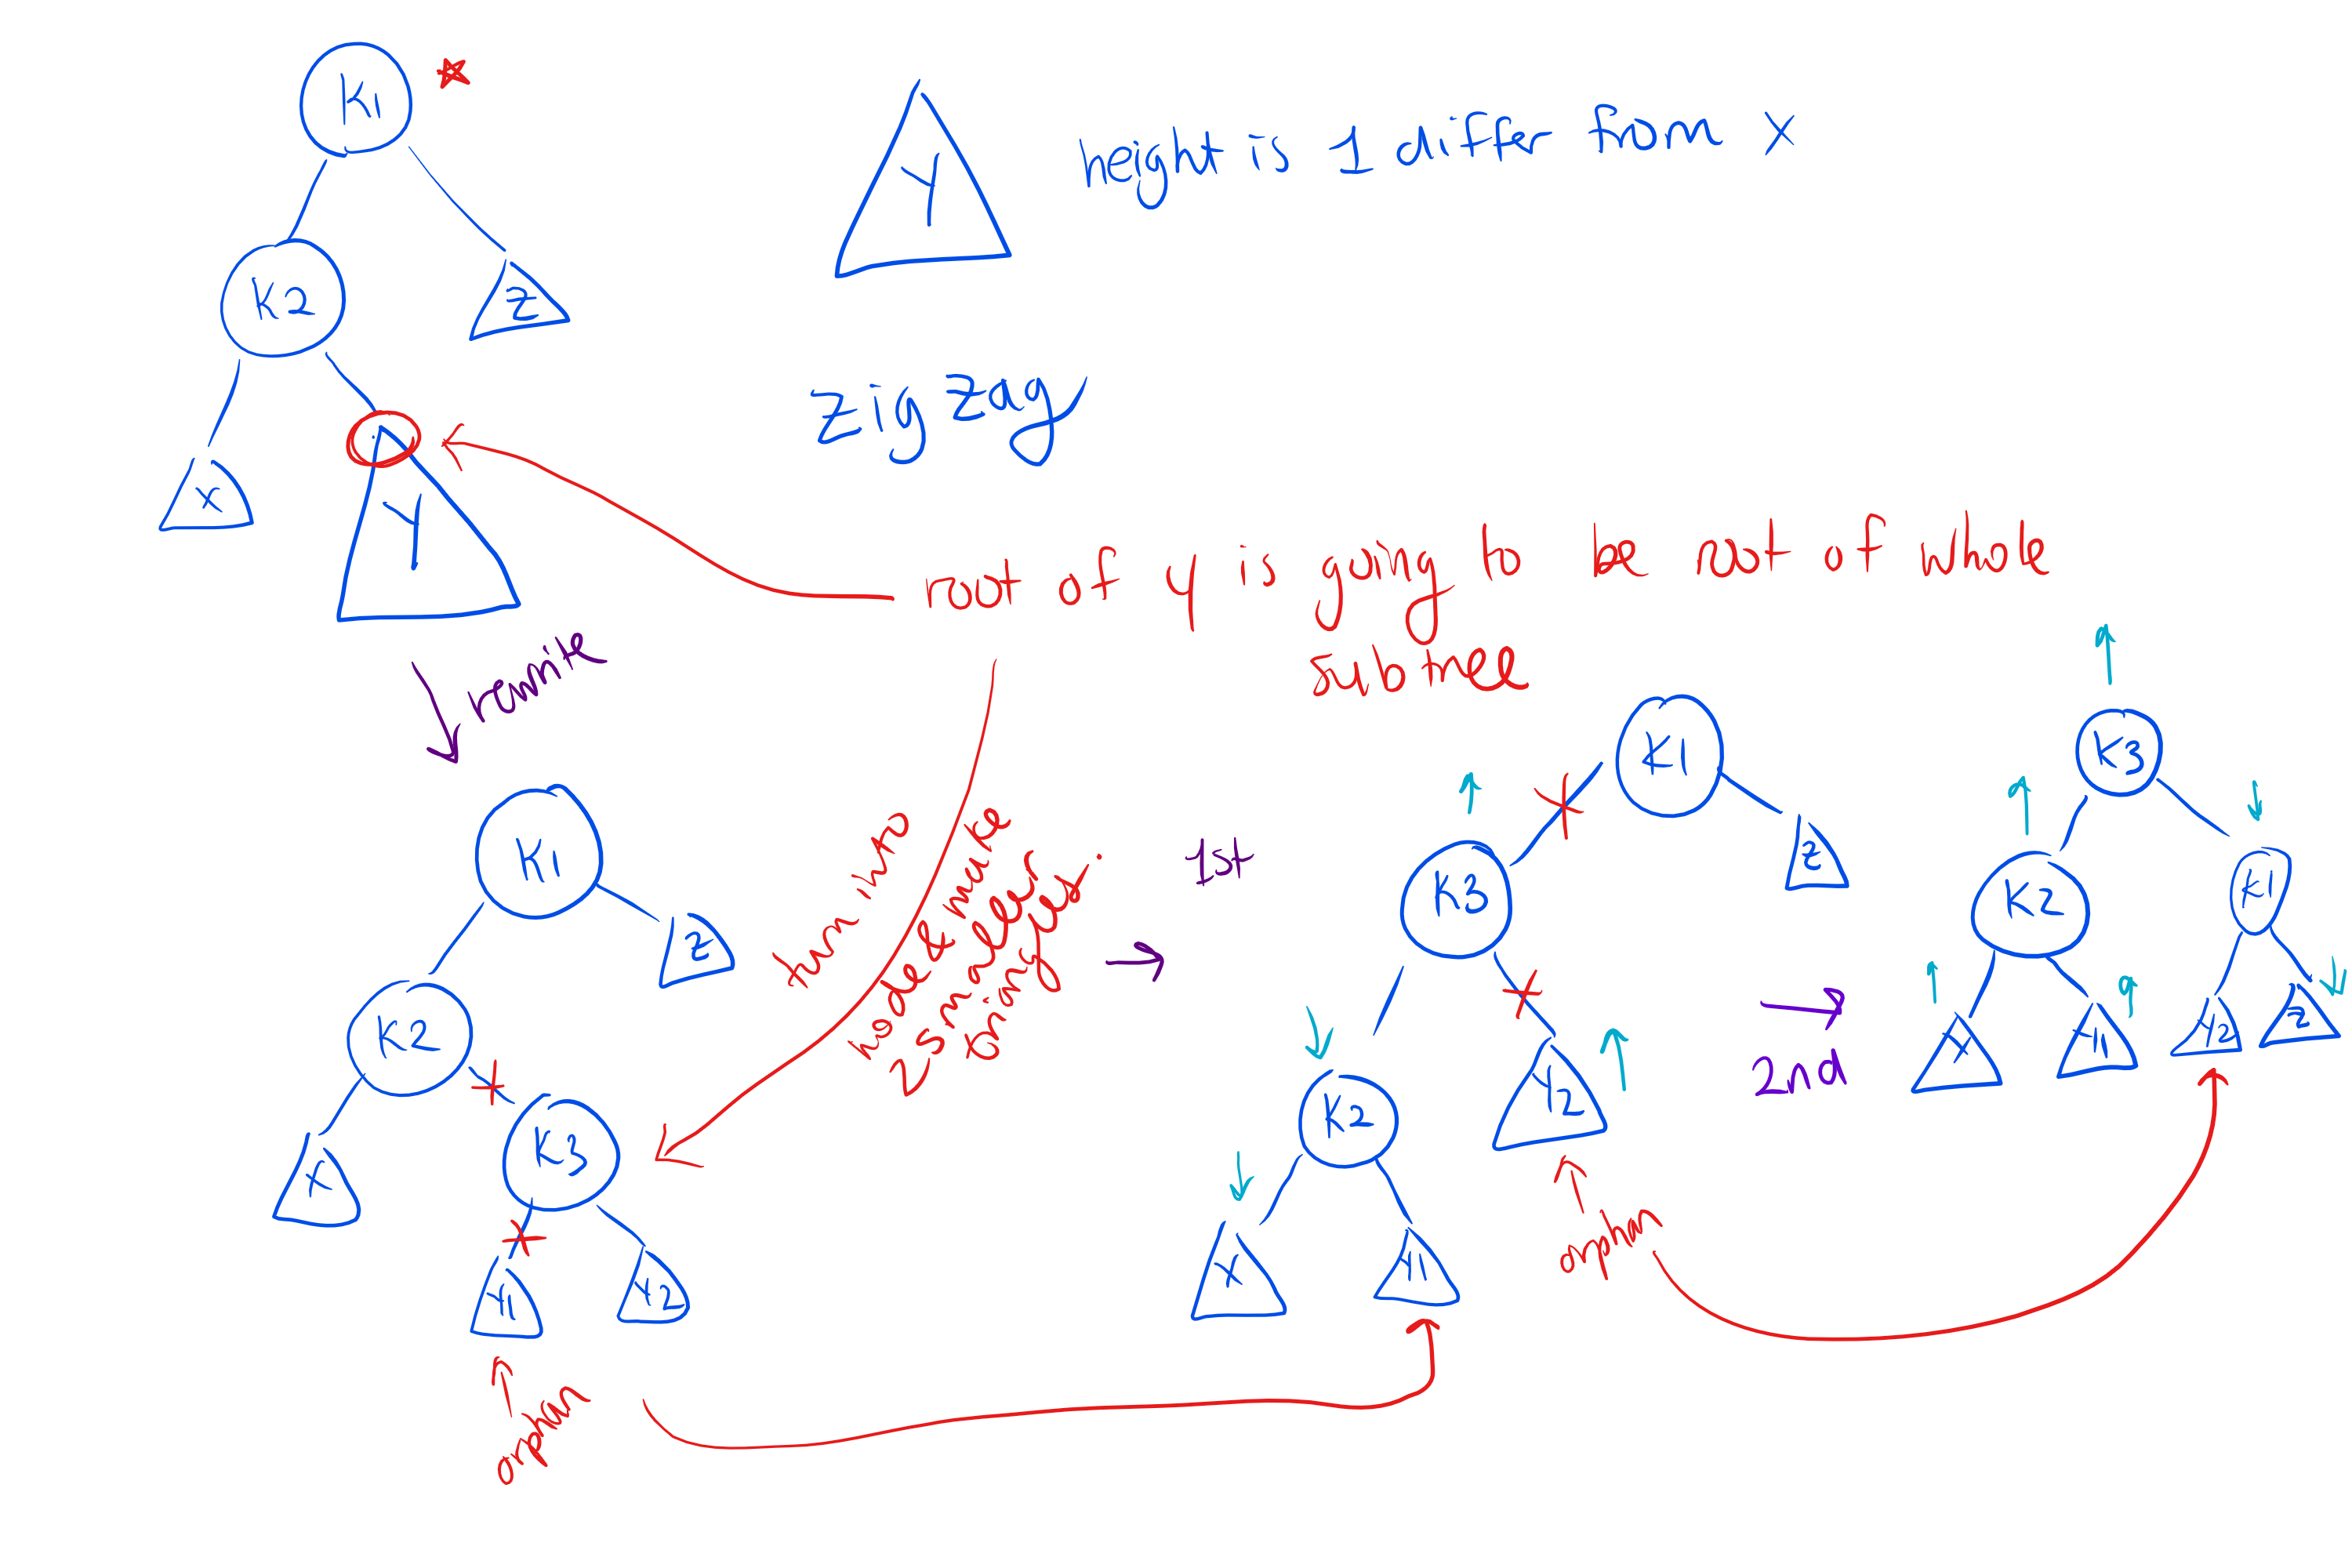 K1
Y
height is 1 differ from X
K2
Z
zig zag
X
Y
root of Y is going to be root of whole
subtree
rewrite
K1
Z
K2
X
K3
Y1
Y2
orphan
turn into
need to make
2 smaller
triangles.
1st
K1
K3
Z
K2
Y2
X
Y1
orphan
2nd
K3
K2
K1
X
Y1
Y2
Z